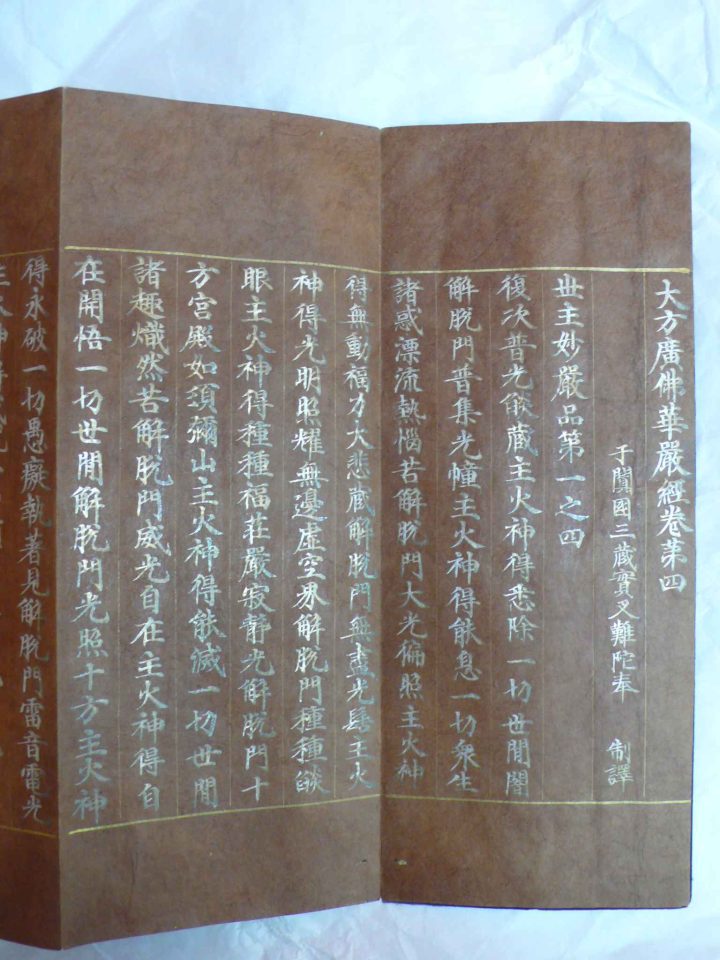 大方廣佛華嚴經卷第四
于闐國三藏實叉難陀奉　制譯
世主妙嚴品第一之四
復次普光燄藏主火神得悉除一切世間闇
解脫門普集光幢主火神得能息一切衆生
諸惑漂流熱惱苦解脫門大光徧照主火神
得無動福力大悲藏解脫門無盡光髻主火
神得光明照耀無邊虛空界解脫門種種燄
眼主火神得種種福莊嚴寂靜光解脫門十
方宮殿如須彌山主火神得能滅一切世間
諸趣熾然苦解脫門威光自在主火神得自
在開悟一切世間解脫門光照十方主火神
得永破一切愚癡執著見解脫門雷音電光